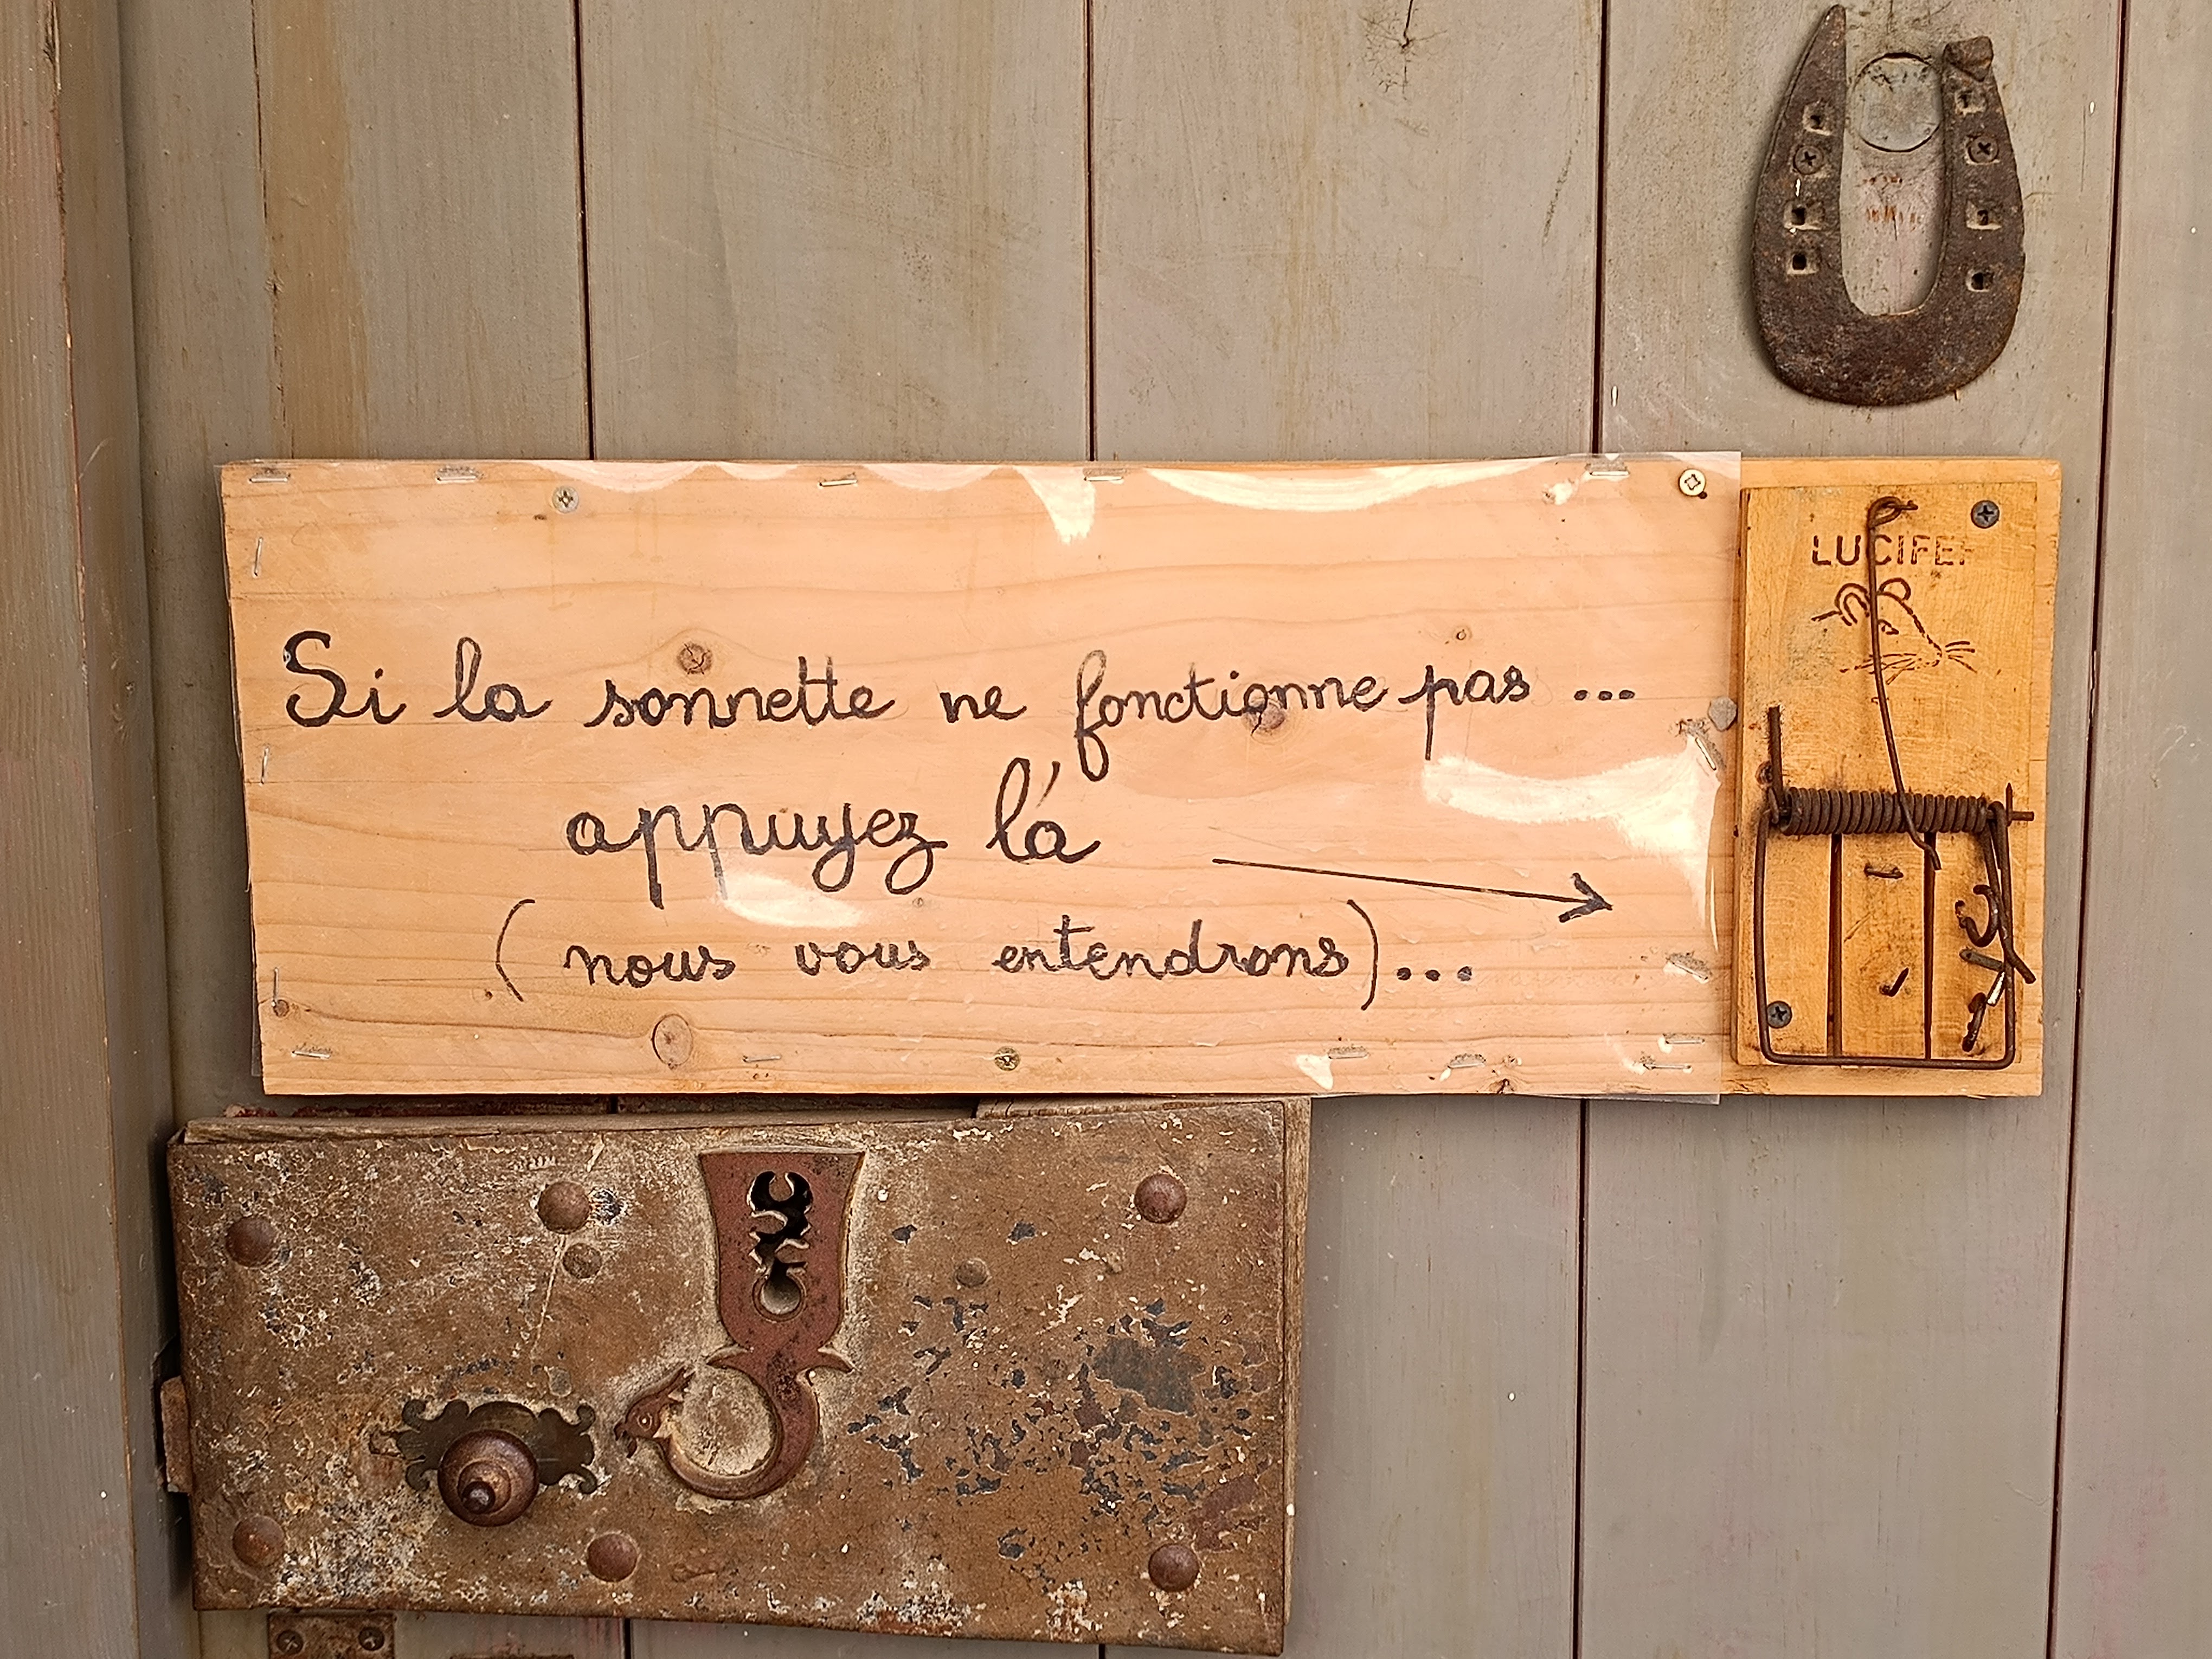 Si la sonnette ne fonctionne pas ...
appuyez lá
( nous vous entendrons)...
LUCIFER